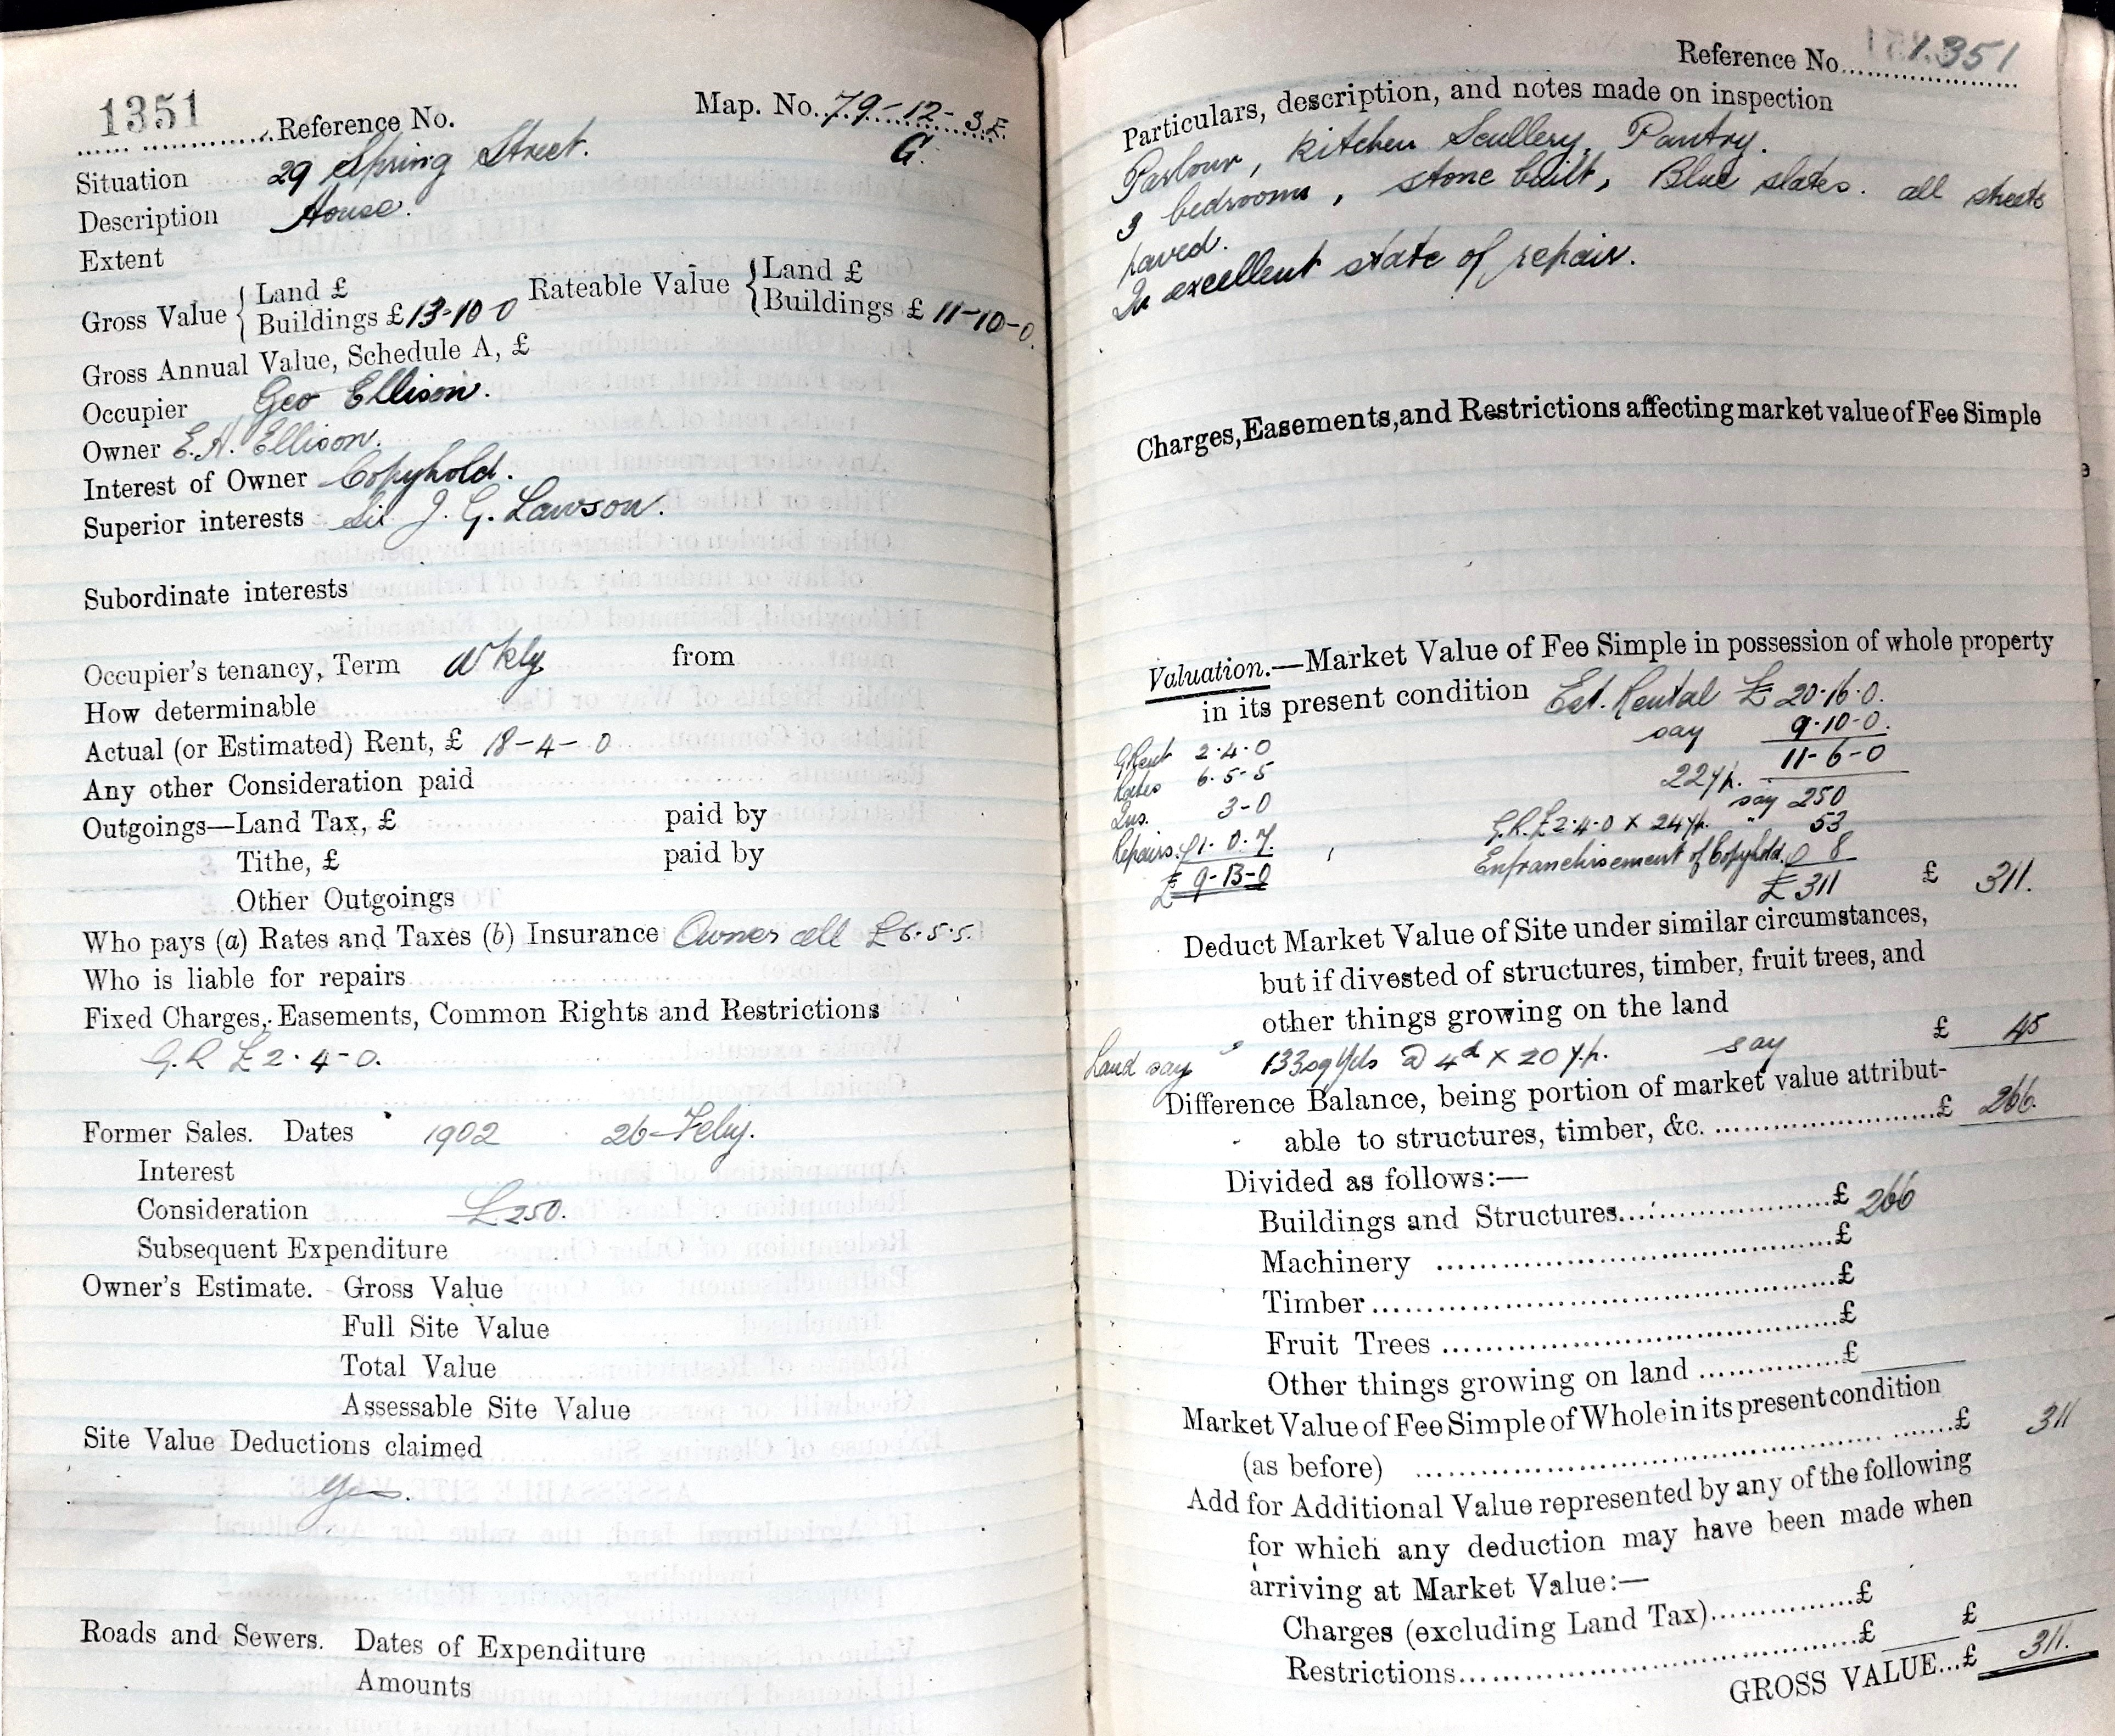 1351
Reference No. Map. No. 79-12-3.E.
G.
Situation 29 Spring Street.
Description House.
Extent
Gross Value { Land £
Buildings £ 13-10 0
Rateable Value { Land £
Buildings £ 11-10-0.
Gross Annual Value, Schedule A, £
Occupier Geo Ellison.
Owner E.H. Ellison.
Interest of Owner Copyhold.
Superior interests Sir J. G. Lawson.
Subordinate interests
Occupier's tenancy, Term Wkly from
How determinable
Actual (or Estimated) Rent, £ 18-4-0
Any other Consideration paid
Outgoings—Land Tax, £ paid by
Tithe, £ paid by
Other Outgoings
Who pays (a) Rates and Taxes (b) Insurance Owner all £6.5.5.
Who is liable for repairs
Fixed Charges, Easements, Common Rights and Restrictions
G.R £2.4-0.
Former Sales. Dates 1902 26-Feby.
Interest
Consideration £250.
Subsequent Expenditure
Owner's Estimate. Gross Value
Full Site Value
Total Value
Assessable Site Value
Site Value Deductions claimed
Yes.
Roads and Sewers. Dates of Expenditure
Amounts
Reference No. 1351
Particulars, description, and notes made on inspection
Parlour, Kitchen Scullery, Pantry.
3 bedrooms, stone built, Blue slates. all streets
paved.
In excellent state of repair.
Charges, Easements, and Restrictions affecting market value of Fee Simple
Valuation.—Market Value of Fee Simple in possession of whole property
in its present condition Est. Rental £20.16.0.
say 9.10-0.
11-6-0
22 y.p. say 250
G.R. £2.4.0 x 24 y.p. " 53
Enfranchisement of Copyhold. 8
£311 £ 311.
G Rent 2.4.0
Rates 6.5-5
Ins. 3-0
Repairs. £1.0.7.
£9-13-0
Deduct Market Value of Site under similar circumstances,
but if divested of structures, timber, fruit trees, and
other things growing on the land
Land say 133 sq Yds @ 4d x 20 y.p. say £ 45
Difference Balance, being portion of market value attribut-
able to structures, timber, &c. £ 266.
Divided as follows:—
Buildings and Structures £ 266
Machinery £
Timber £
Fruit Trees £
Other things growing on land £
Market Value of Fee Simple of Whole in its present condition
(as before) £ 311
Add for Additional Value represented by any of the following
for which any deduction may have been made when
arriving at Market Value:—
Charges (excluding Land Tax) £
Restrictions £ £
GROSS VALUE...£ 311.